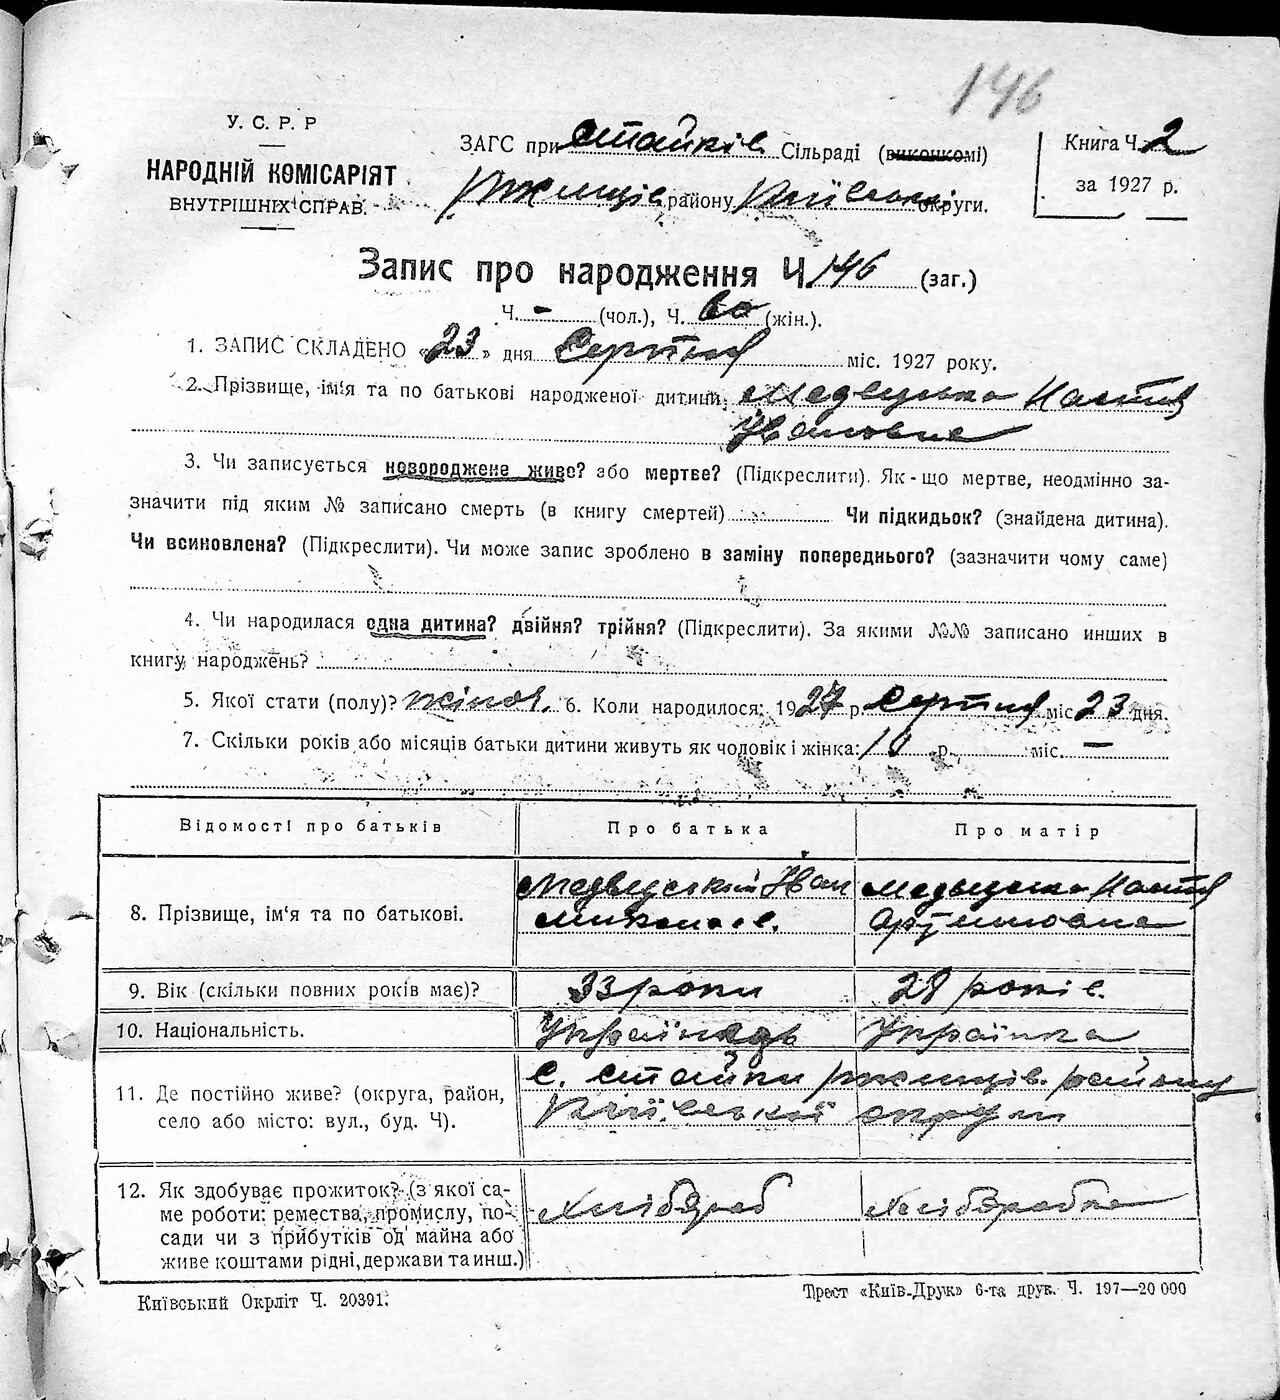 146
У. С. Р. Р
НАРОДНІЙ КОМІСАРІЯТ
ВНУТРІШНІХ СПРАВ.
ЗАГС при Стайків. Сільраді (виконкомі)
Ржищів району Київської округи.
Книга Ч. 2
за 1927 р.
Запис про народження Ч. 146 (заг.)
Ч. - (чол.), Ч. 60 (жін.).
1. ЗАПИС СКЛАДЕНО «23» дня Серпня міс. 1927 року.
2. Прізвище, ім'я та по батькові народженої дитини: Медвецька Настя
Ивановна
3. Чи записується новороджене живе? або мертве? (Підкреслити). Як-що мертве, неодмінно за-
значити під яким № записано смерть (в книгу смертей) Чи підкидьок? (знайдена дитина).
Чи всиновлена? (Підкреслити). Чи може запис зроблено в заміну попереднього? (зазначити чому саме)
4. Чи народилася одна дитина? двійня? трійня? (Підкреслити). За якими №№ записано инших в
книгу народжень?
5. Якої стати (полу)? жіноч. 6. Коли народилося: 1927 р. Серпня міс. 23 дня.
7. Скільки років або місяців батьки дитини живуть як чоловік і жінка: 10 р. міс. —
Відомості про батьків Про батька Про матір
8. Прізвище, ім'я та по батькові. Медвецький Иван Медвецька Настя
Микола
9. Вік (скільки повних років має)? 33 роки 28 років.
10. Національність. Українець Українка
11. Де постійно живе? (округа, район, с. Стайки Ржищів. району
село або місто: вул., буд. Ч). Київської округи
12. Як здобуває прожиток? (з якої са-
ме роботи: ремества, промислу, по- Хлібороб Хлібороbка
сади чи з прибутків од майна або
живе коштами рідні, держави та инш.)
Київський Окрліт Ч. 20391.
Трест «Київ-Друк» 6-та друк. Ч. 197—20 000